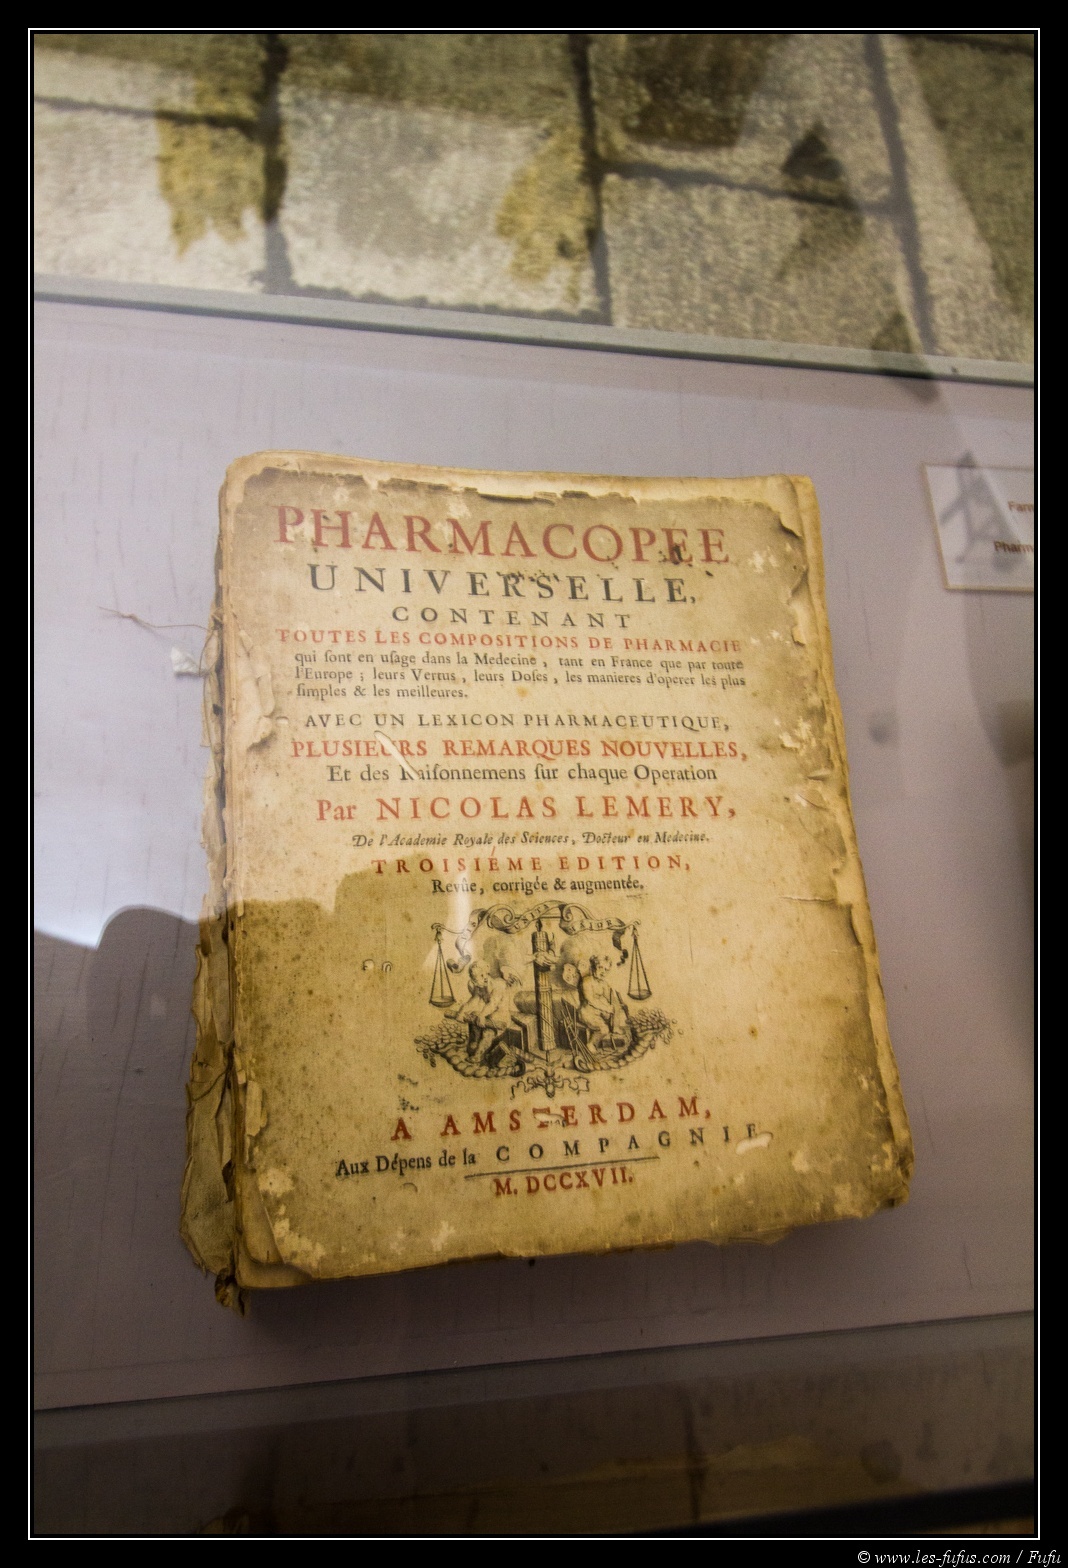 PHARMACOPEE
UNIVERSELLE,
CONTENANT
TOUTES LES COMPOSITIONS DE PHARMACIE
qui ſont en uſage dans la Medecine, tant en France que par toute
l'Europe; leurs Vertus, leurs Doſes, les manieres d'operer les plus
ſimples & les meilleures.
AVEC UN LEXICON PHARMACEUTIQUE,
PLUSIEURS REMARQUES NOUVELLES,
Et des Raiſonnemens ſur chaque Operation
Par NICOLAS LEMERY,
De l'Academie Royale des Sciences, Docteur en Medecine.
TROISIÉME EDITION,
Revûe, corrigée & augmentée.
A AMSTERDAM,
Aux Dépens de la COMPAGNIE
M. DCCXVII.
Pharm
© www.les-fufus.com / Fufu